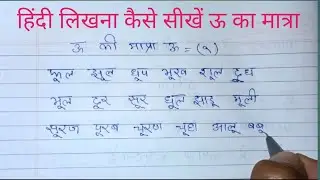 हिंदी लिखना कैसे सीखें ऊ का मात्रा
ऊ की मात्रा ऊ = ( ू )
फूल झूल धूप भूख शूल दूध
भूल दूर सूर धूल झाडू मूली
सूरज पूरब चूरण चूहा आलू बबू